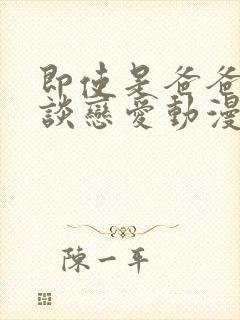 即使是爸爸
談戀愛動漫
陳一平